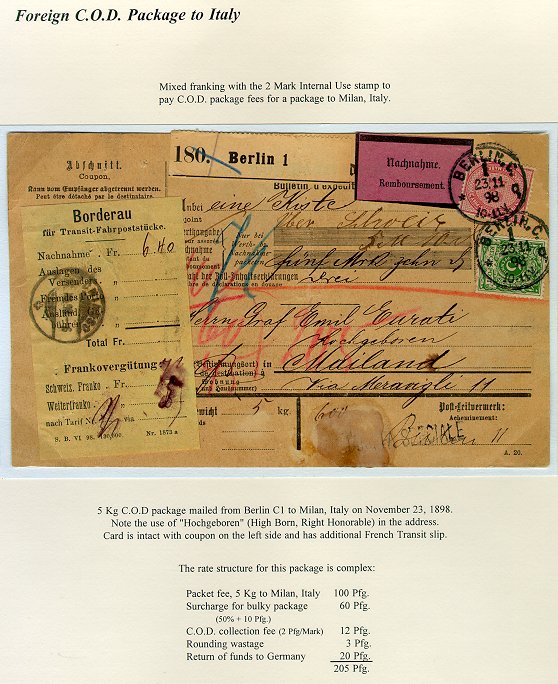 Foreign C.O.D. Package to Italy
Mixed franking with the 2 Mark Internal Use stamp to
pay C.O.D. package fees for a package to Milan, Italy.
Abschnitt.
Coupon.
Kann vom Empfänger abgetrennt werden.
Peut être détaché par le destinataire.
180. Berlin 1
Nachnahme.
Remboursement.
BERLIN.C.
1
23.11
98
BERLIN.C.
1
23.11
98
Bulletin d'expédit
eine Kiste
über Schweiz
Borderau
für Transit-Fahrpoststücke.
Nachnahme Fr. 6.40
Auslagen des
Versenders
Fremdes Porto
Total Fr.
Frankovergütung
Schweiz. Franko Fr.
Weiterfranko
nach Tarif No via
S. B. VI 98. 130,000. Nr. 1873 a
Drei
Herrn Graf Emil Turati
Hochgeboren
Mailand
Via Meravigli 11
5 kg.
Post-Leitvermerk:
Acheminement.
A. 20.
5 Kg C.O.D package mailed from Berlin C1 to Milan, Italy on November 23, 1898.
Note the use of "Hochgeboren" (High Born, Right Honorable) in the address.
Card is intact with coupon on the left side and has additional French Transit slip.
The rate structure for this package is complex:
Packet fee, 5 Kg to Milan, Italy 100 Pfg.
Surcharge for bulky package 60 Pfg.
(50% + 10 Pfg.)
C.O.D. collection fee (2 Pfg/Mark) 12 Pfg.
Rounding wastage 3 Pfg.
Return of funds to Germany 20 Pfg.
205 Pfg.